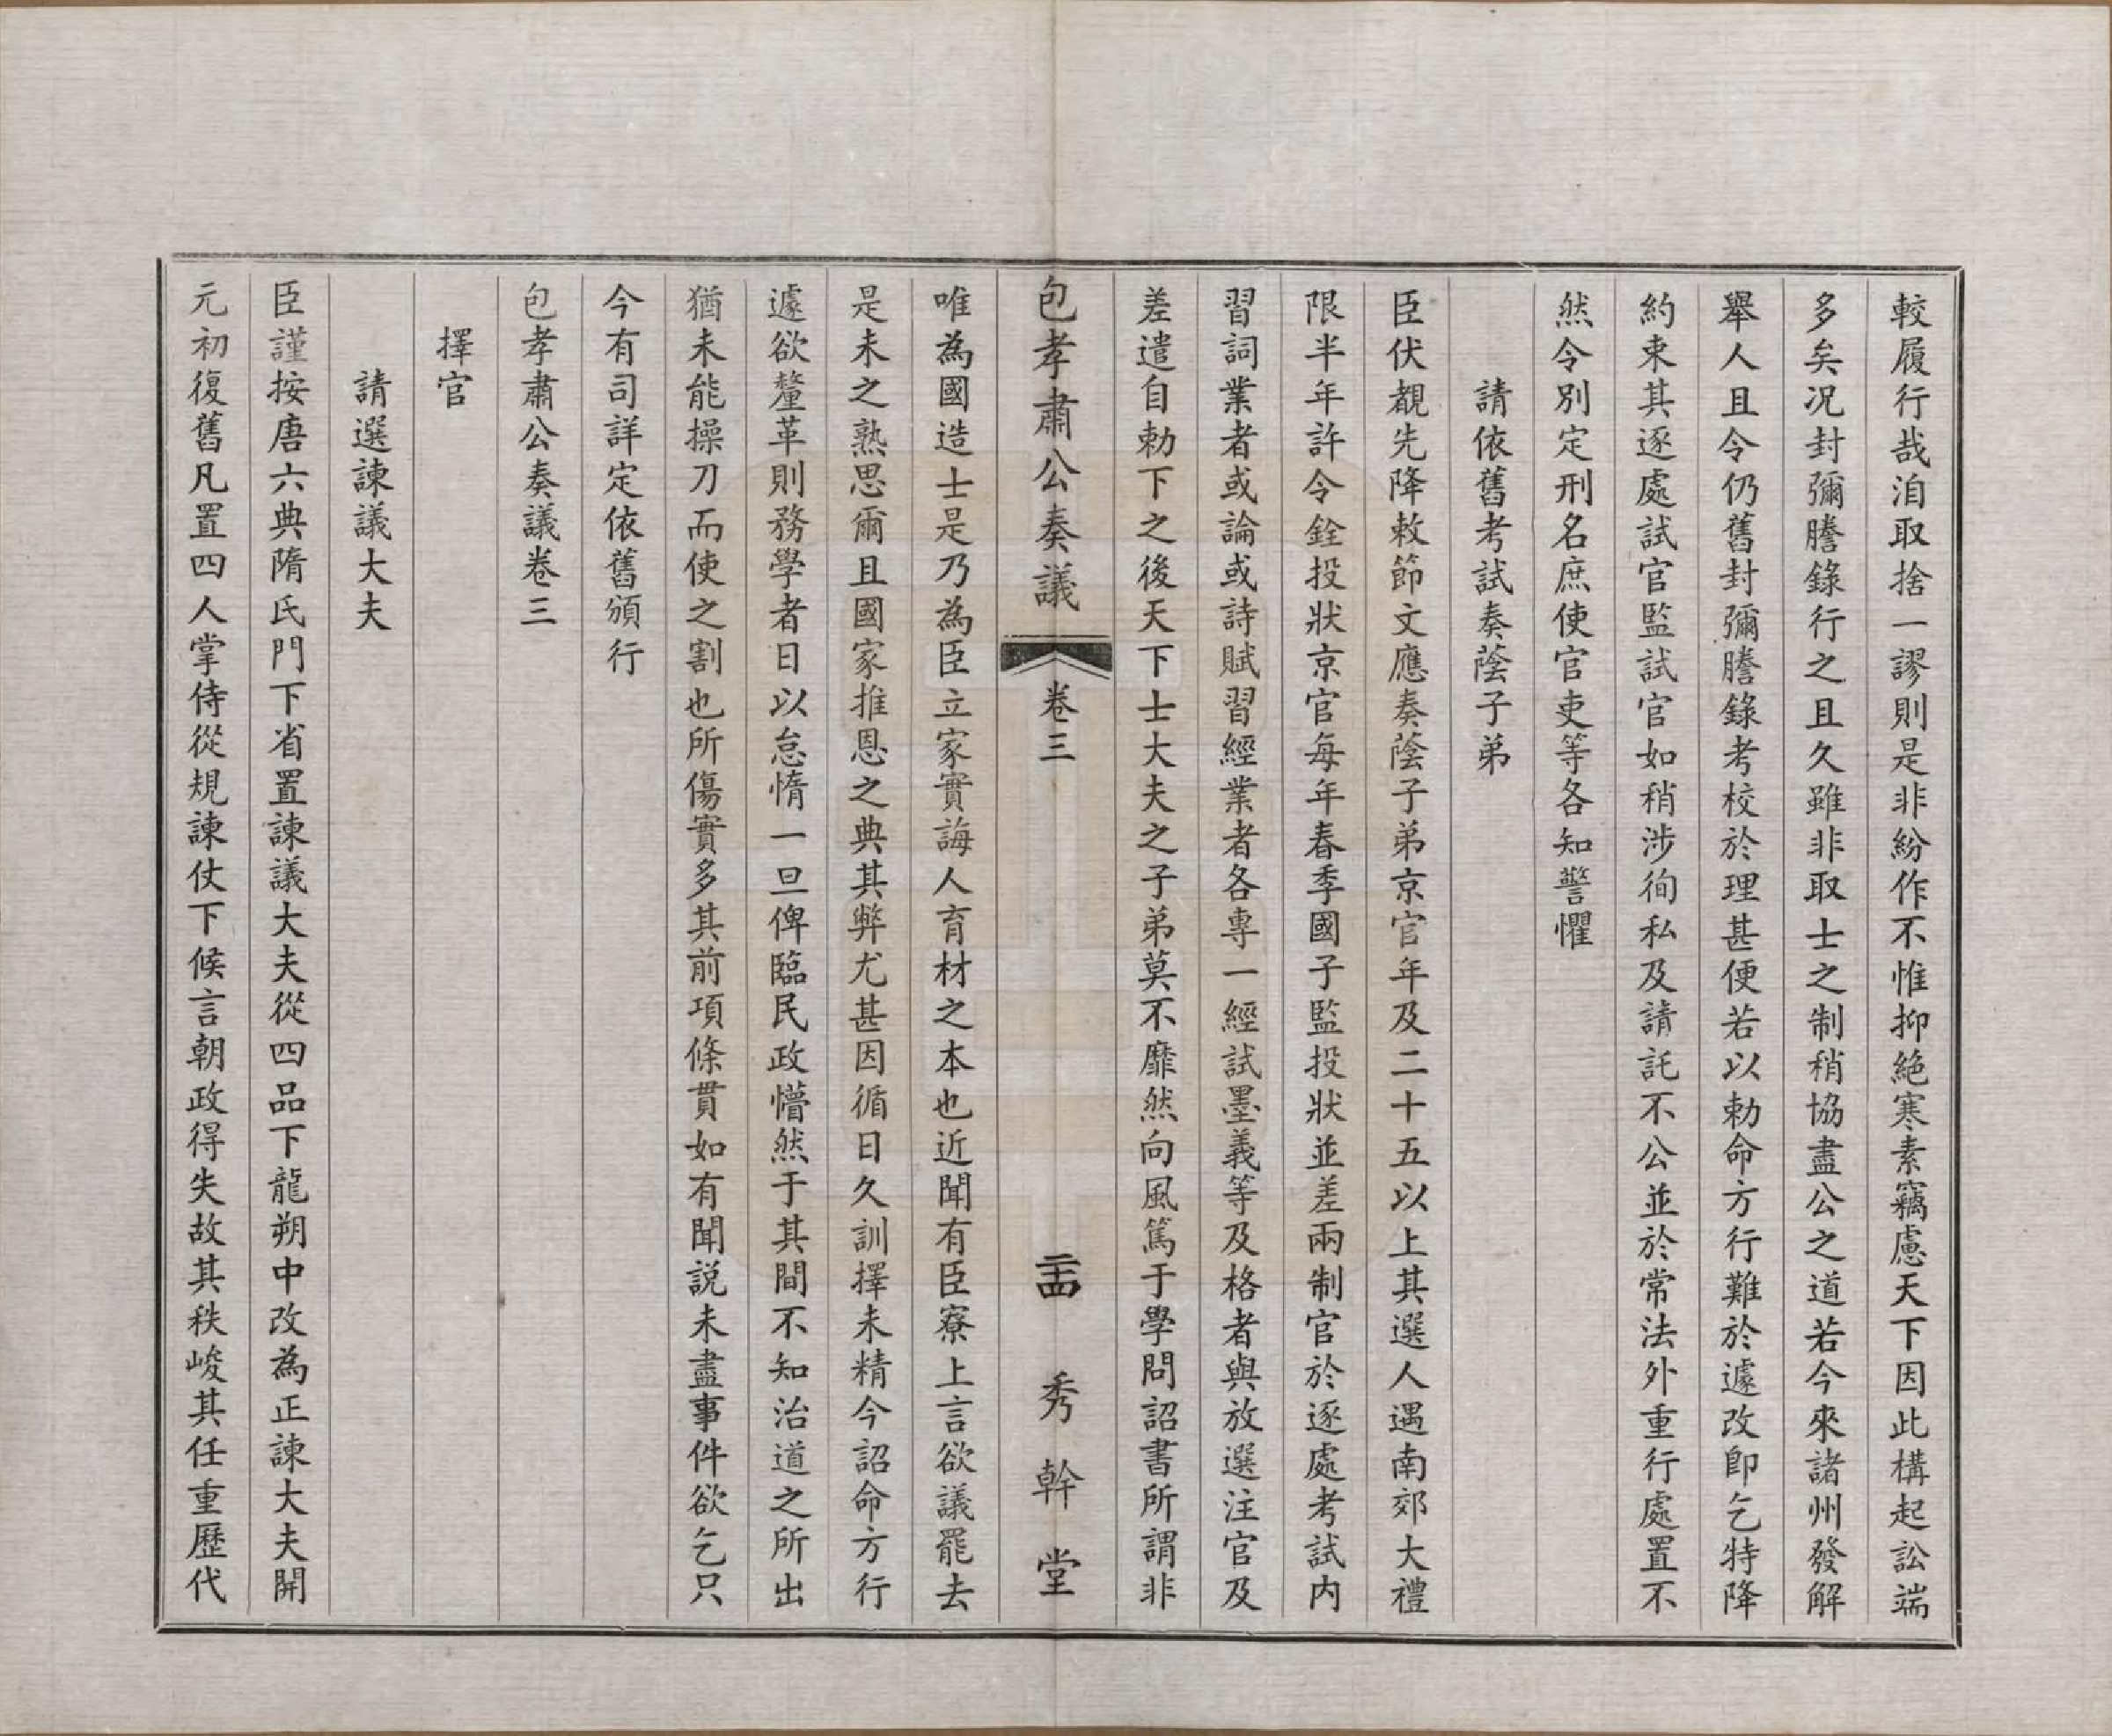 較履行哉洎取捨一謬則是非紛作不惟抑絶寒素竊慮天下因此構起訟端
多矣况封彌謄錄行之且久雖非取士之制稍協盡公之道若今來諸州發解
舉人且令仍舊封彌謄錄考校於理甚便若以勅命方行難於遽改卽乞特降
約束其逐處試官監試官如稍涉徇私及請託不公並於常法外重行處置不
然令別定刑名庶使官吏等各知警懼
請依舊考試奏蔭子弟
臣伏覩先降敕節文應奏蔭子弟京官年及二十五以上其選人遇南郊大禮
限半年許令銓投狀京官每年春季國子監投狀並差兩制官於逐處考試内
習詞業者或論或詩賦習經業者各專一經試墨義等及格者與放選注官及
差遣自勅下之後天下士大夫之子弟莫不靡然向風篤于學問詔書所謂非
包孝肅公奏議 卷三 二十四 秀幹堂
唯為國造士是乃為臣立家實誨人育材之本也近聞有臣寮上言欲議罷去
是未之熟思爾且國家推恩之典其弊尤甚因循日久訓擇未精今詔命方行
遽欲釐革則務學者日以怠惰一旦俾臨民政懵然于其間不知治道之所出
猶未能操刀而使之割也所傷實多其前項條貫如有聞説未盡事件欲乞只
今有司詳定依舊頒行
包孝肅公奏議卷三
擇官
請選諫議大夫
臣謹按唐六典隋氏門下省置諫議大夫從四品下龍朔中改為正諫大夫開
元初復舊凡置四人掌侍從規諫仗下候言朝政得失故其秩峻其任重歷代